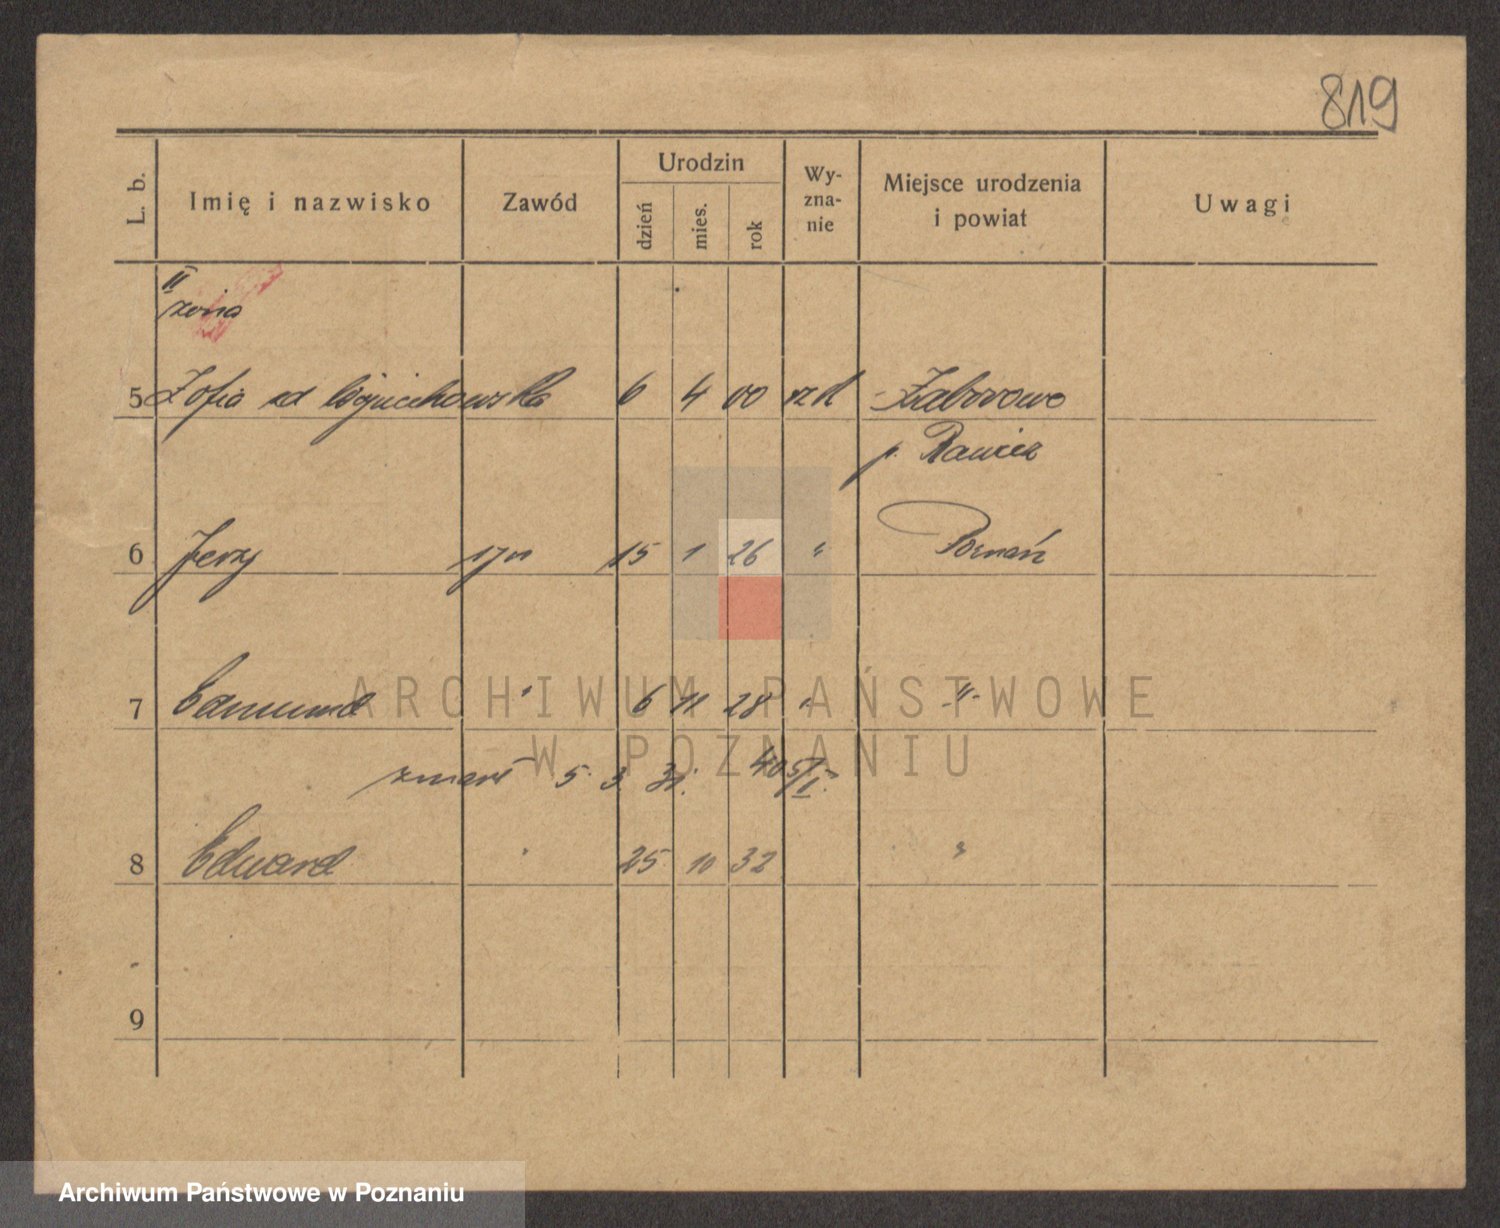 819
L. b. Imię i nazwisko Zawód Urodzin dzień mies. rok Wy-zna-nie Miejsce urodzenia i powiat Uwagi
II
żona
5 Zofia zd Wojciechowska 6 4 00 rzk Zaborowo
p. Rawicz
6 Jerzy syn 15 1 26 " Poznań
7 Edmund " 6 11 28 " -"-
zmarł 5. 3. 31. 40 5/II.
8 Edward " 25 10 32 "
9
ARCHIWUM PAŃSTWOWE
W POZNANIU
Archiwum Państwowe w Poznaniu